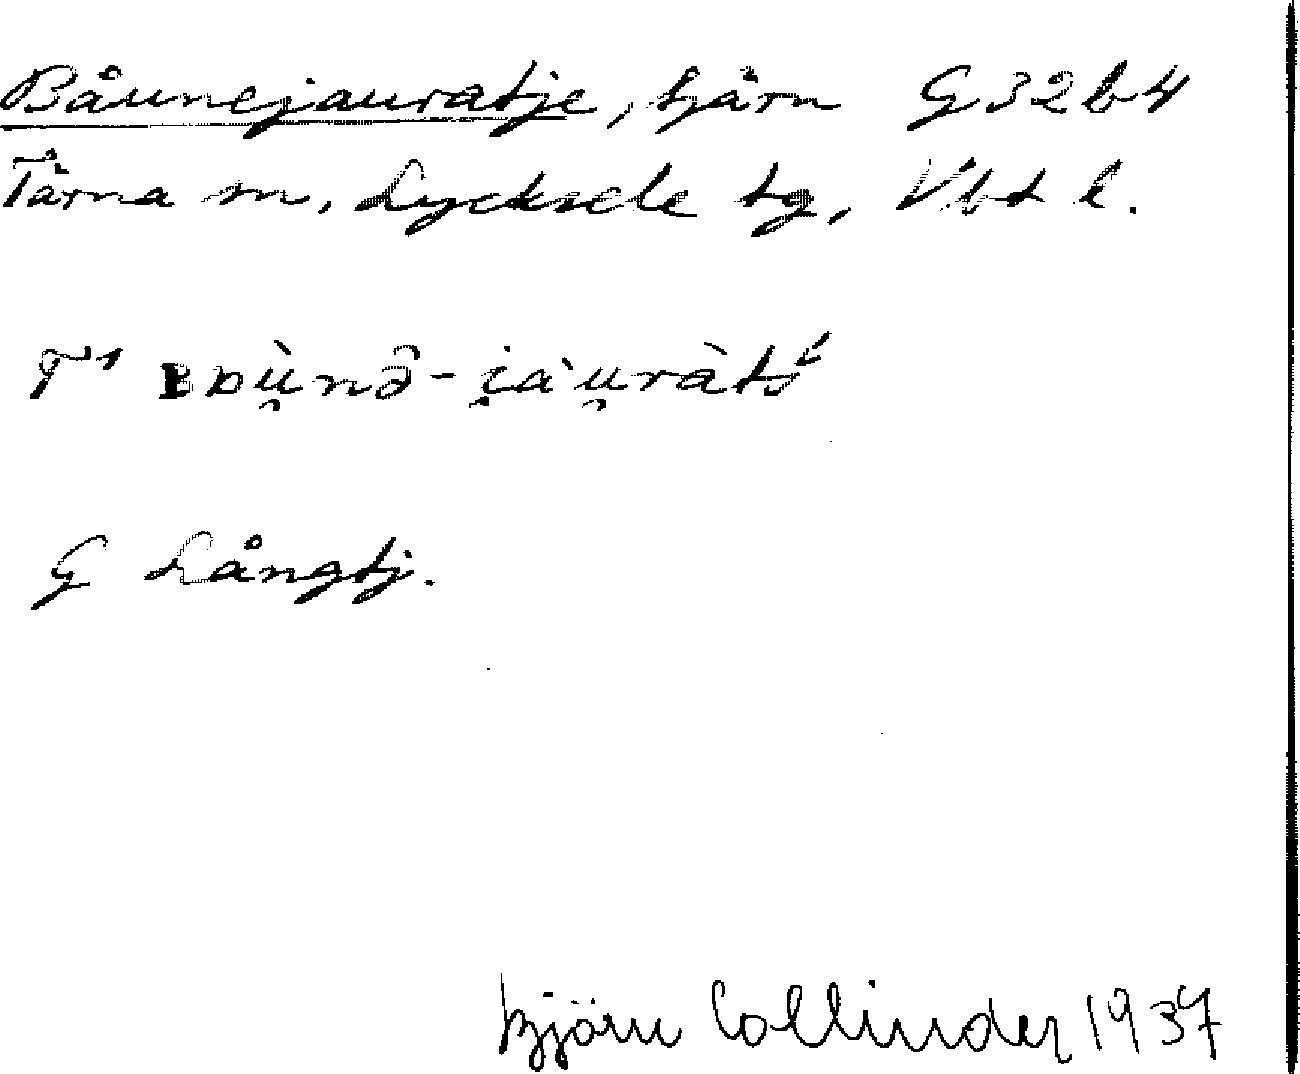 Båunejauratje, tjärn G32b4
Tärna sn, Lycksele tg, Vbt l.
T¹ ʙɒù̯nə̂-i̯àu̯ràtś
G Långtj.
Björn Collinder 1937